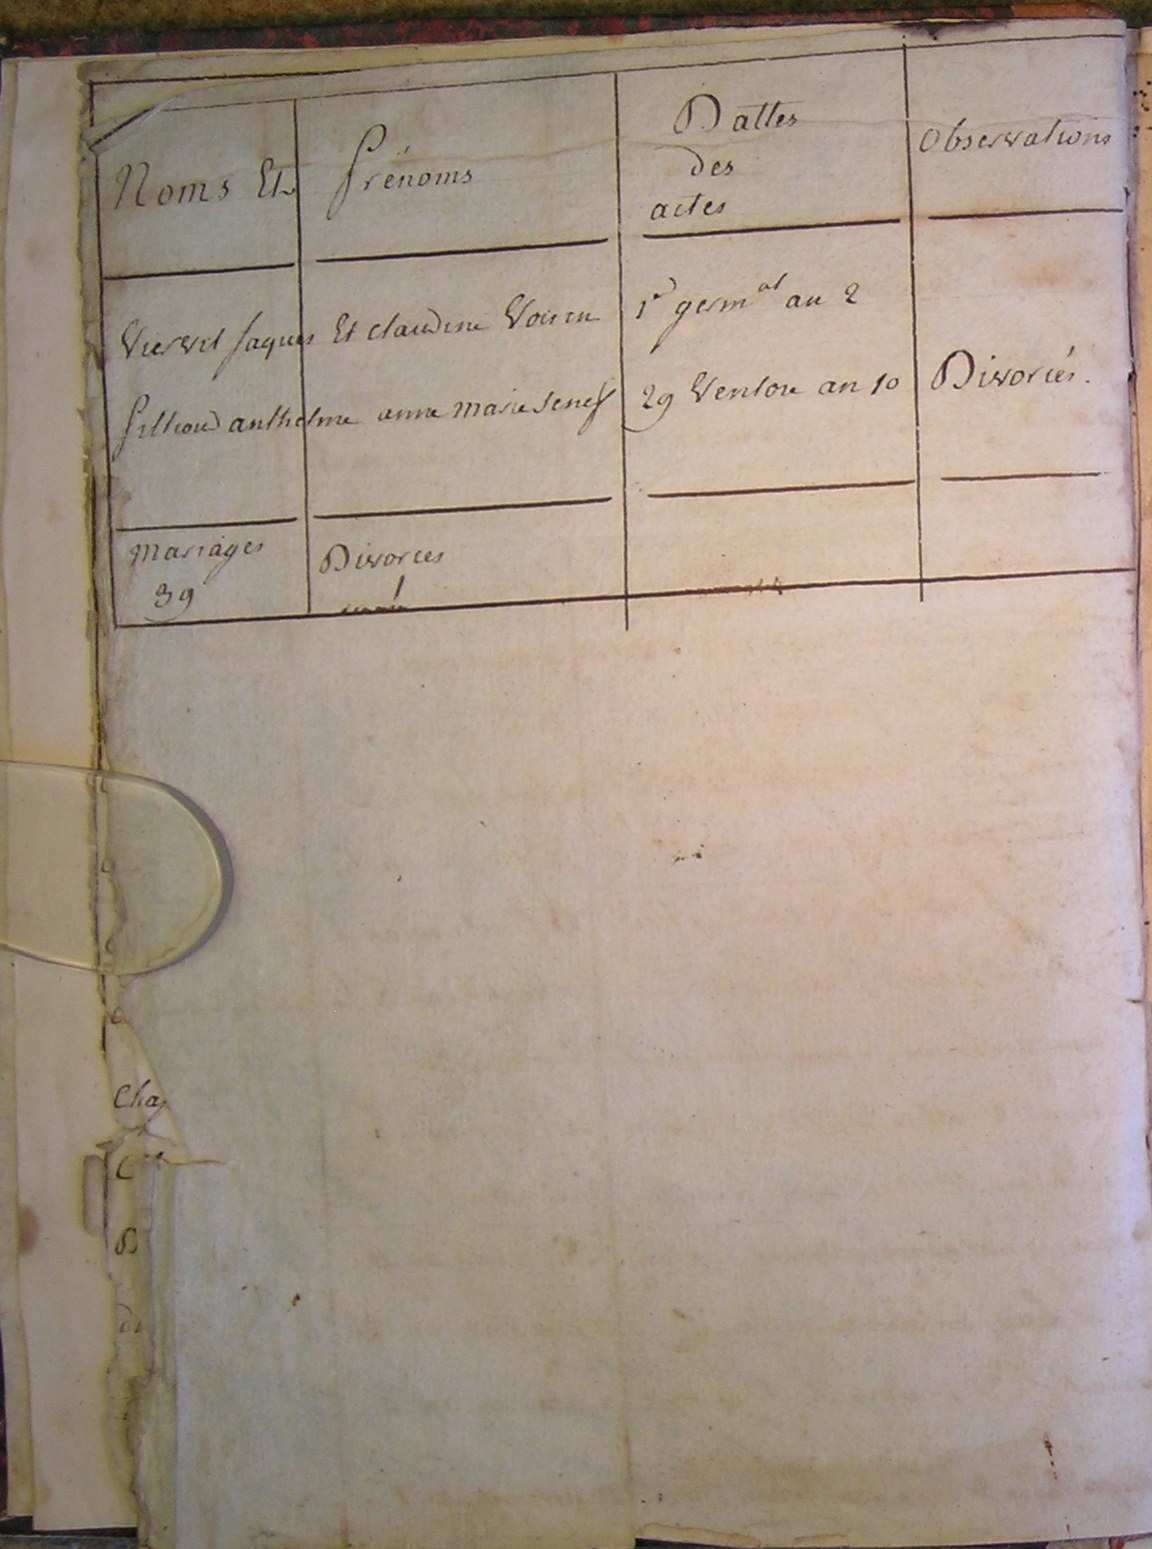 Noms Et Prénoms
Dattes
des
actes
Observations
Viervil Jaques Et claudine Voisin 1er germal an 2
anthelme anne marie 29 Ventose an 10 Divorcés.
mariages Divorces
39
Cha
C
B